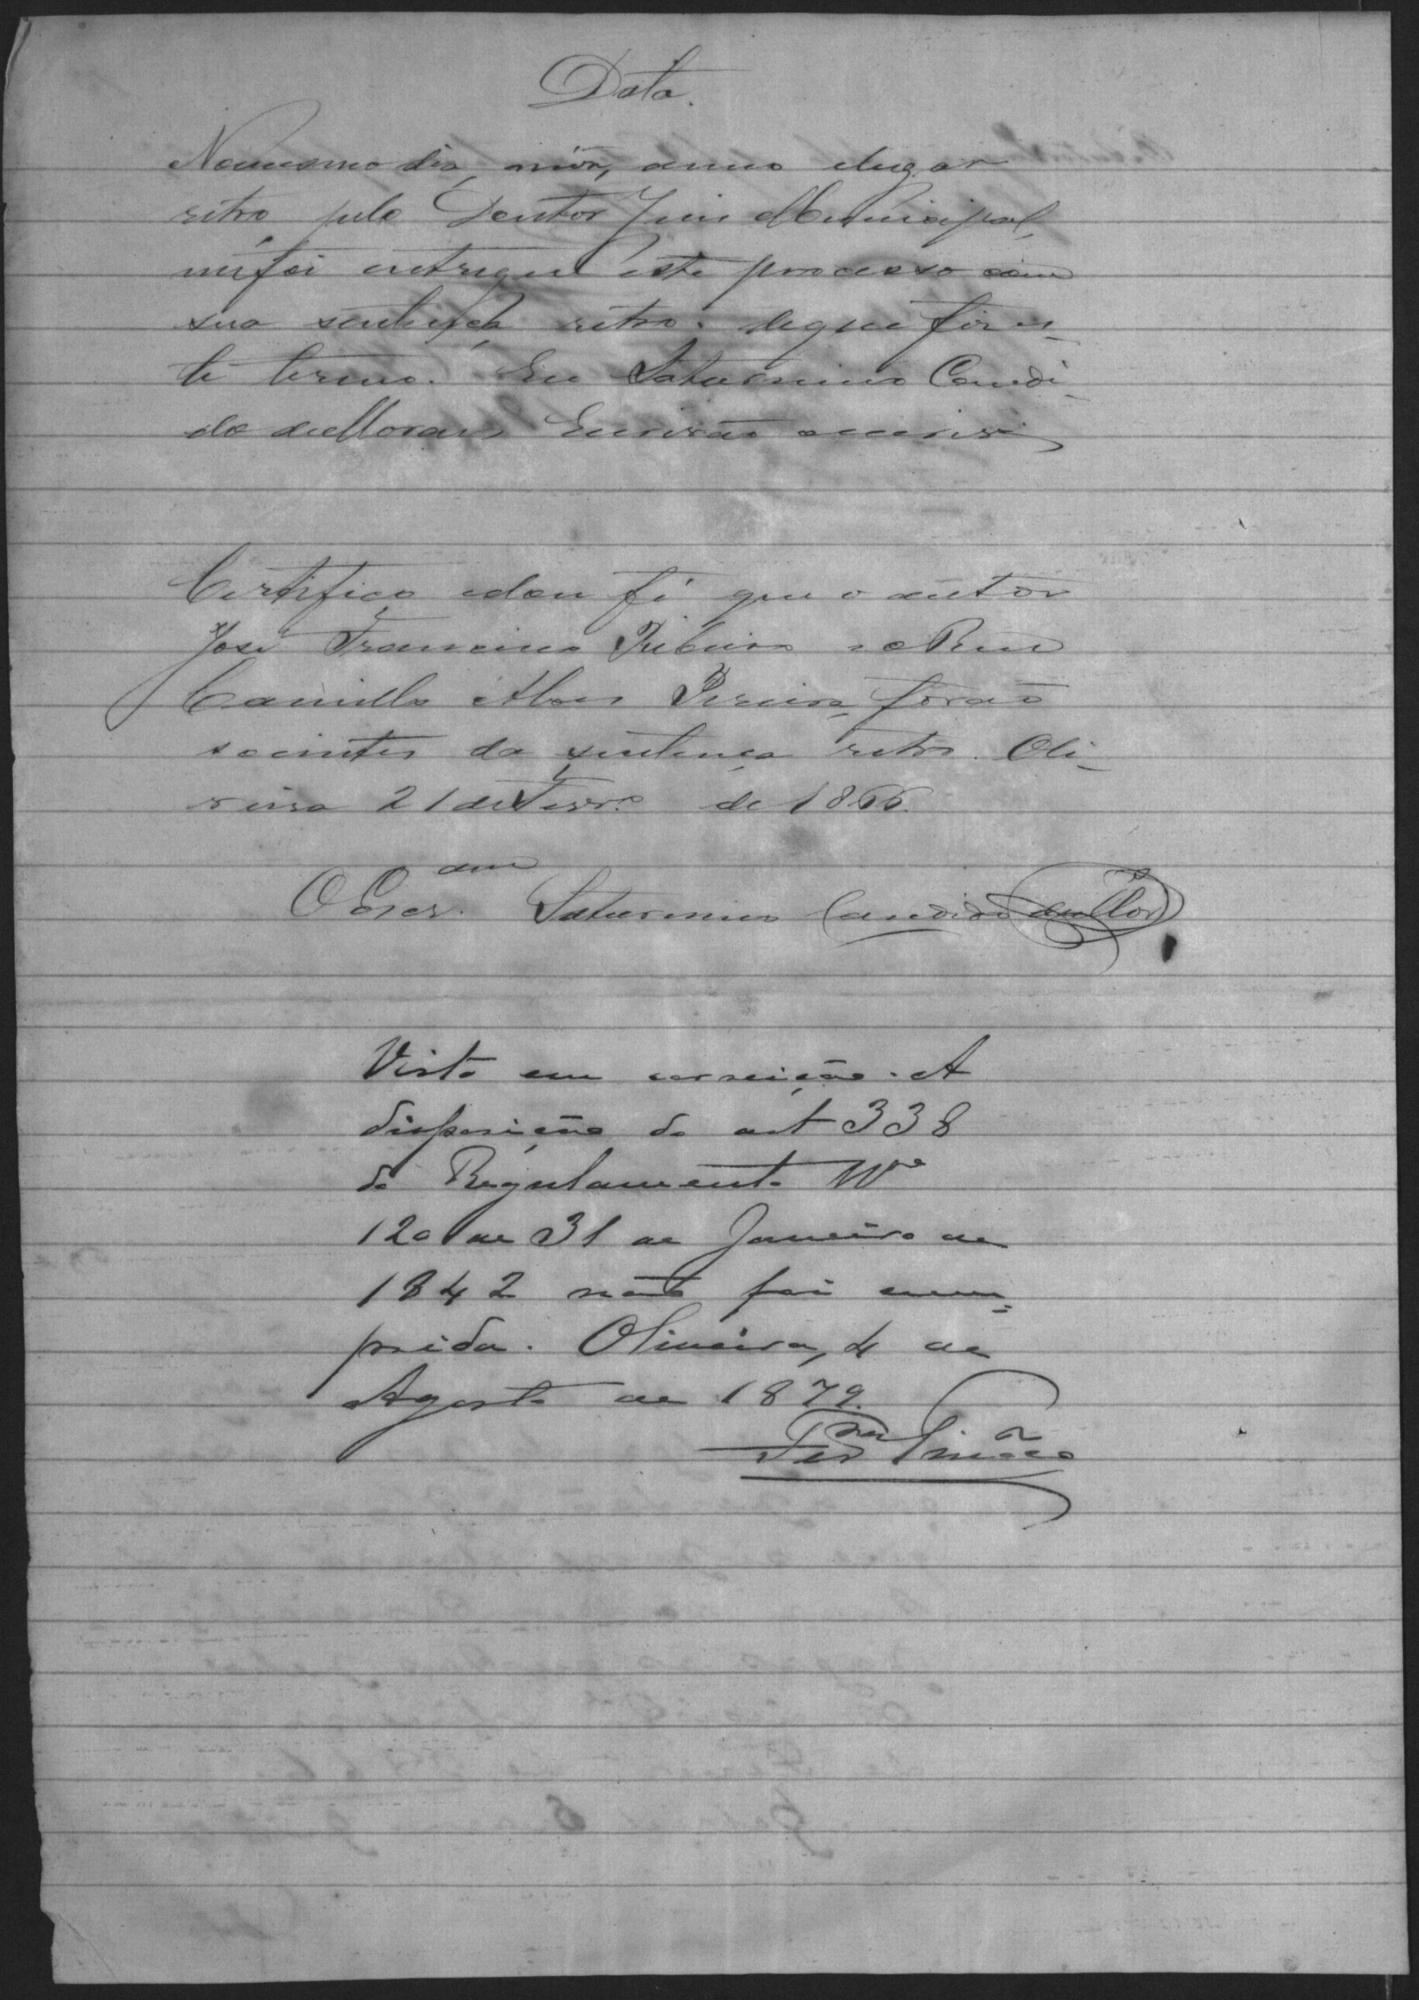 Data.
Nomesmo dia, mês, anno elugar
retro pelo Doutor Juiz Municipal,
mefoi entregue este processo com
sua sentença retro. dequefiz es-
te termo. Eu Saturnino Candi-
do deMoraes Escrivão oescrevi
Certifico edou fé que o autor
José Francisco Ribeiro eo Reu
Camillo Alves Pereira, forão
scientes da sentença retro. Oli-
veira 21 deFevro. de 1866.
O Escram. Saturnino Candido deMors
Visto em correição. A
disposição do art 338
do Regulamento No
120 de 31 de Janeiro de
1842 não foi cum-
prida. Oliveira, 4 de
Agosto de 1879.